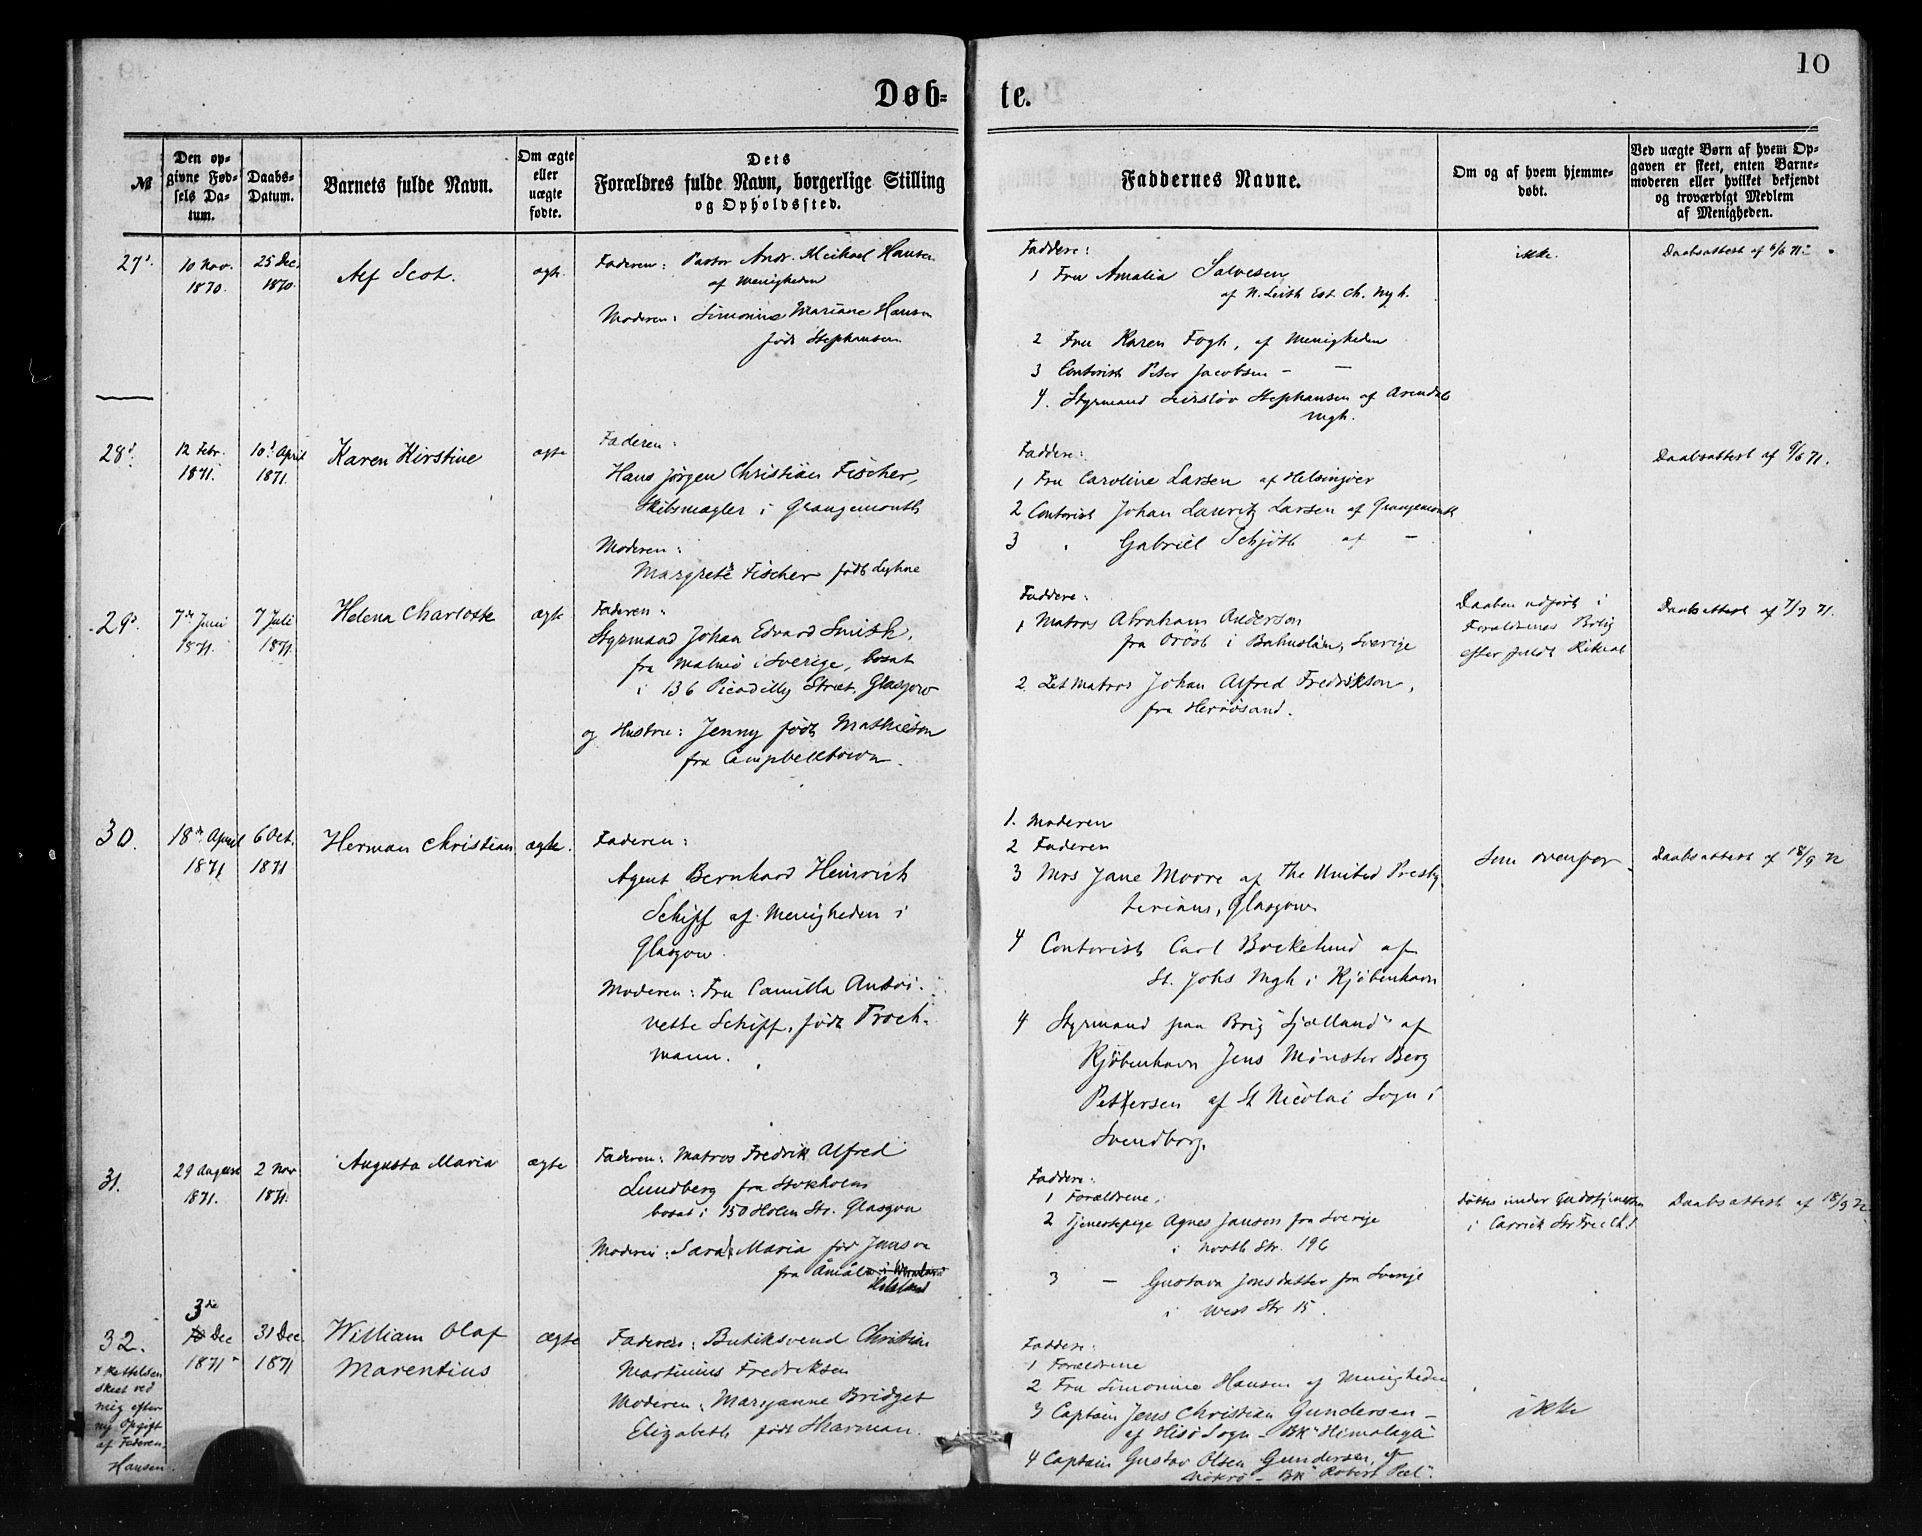 10
Døb-
te.
№
Den op-
givne Fød-
sels Da-
tum.
Daabs-
Datum.
Barnets fulde Navn.
Om ægte
eller
uægte
fødte.
Dets
Forældres fulde Navn, borgerlige Stilling
og Opholdssted.
Faddernes Navne.
Om og af hvem hjemme-
døbt.
Ved uægte Børn af hvem Op-
gaven er skeet, enten Barne-
moderen eller hvilket bekjendt
og troværdigt Medlem
af Menigheden.
27
10 Nov.
1870.
25 Dec.
1870.
Alf Scot.
ægt.
Faderen: Pastor Andr. Michael Hansen
af Menigheden
Moderen: Simonine Mariane Hansen
født Stephansen
Faddere:
1 Fru Amalia Salvesen
af N. Leith Est. Ch. Mgh.
2 Fru Karen Fogh, af Menigheden
3 Contorist Peter Jacobsen - -
4. Styrmand Stephansen af Arendal
Mgh.
ikke.
Daabsattest af 6/6 71
28
12 Febr.
1871.
10 April
1871.
Karen Kirstine
ægte
Faderen:
Hans Jørgen Christian Fischer,
Skibsmægler i Grangemouth
Moderen:
Margrete Fischer født Lyhne
Faddere:
1 Fru Caroline Larsen af Helsingöer
2 Contorist Johan Lauritz Larsen af Grangemouth
3 Gabriel Schjöth af -
Daabsattest af 9/6 71.
29
7de Juni
1871.
7 Juli
1871.
Helena Charlotte
ægte
Faderen:
Styrmand Johan Edvard Smith,
fra Malmö i Sverige, bosat
i 136 Picadilly Street, Glasgow
og Hustru: Jenny født Mathieson
fra Campbelltown.
Faddere:
1 Matros Abraham Anderson
fra Oröst i Bahuslän, Sverige
2. Let Matros Johan Alfred Fredrikson,
fra Hernösand.
Daaben udført i
Forældrenes Bolig
efter fuldt Ritual
Daabsattest af 7/7 71.
30.
18de April
1871
6 Oct.
1871
Herman Christian
ægte.
Faderen:
Agent Bernhard Heinrich
Schipf af Menigheden i
Glasgow.
Moderen: Fru Camilla Antoi-
nette Schipf, født Troch-
mann.
1. Moderen
2 Faderen
3 Mrs Jane Moore af The United Presby
terians, Glasgow
4 Contorist Carl Bockelund af
St. Johs Mgh i Kjöbenhavn
4 Styrmand paa Brig "Sjælland" af
Kjöbenhavn Jens Mönster Berg
Pettersen af St Nicolai Sogn i
Svendborg.
Som ovenfor
Daabsattest af 18/9 72
31.
29 August
1871.
2 Nov
1871.
Augusta Maria
ægte
Faderen: Matros Fredrik Alfred
Lundberg fra Stokholm
bosat i 150 Holm Str. Glasgow
Moderen: Sara Maria för Janson
fra Åmål
Faddere:
1 Forældrene.
2 Tjenestepige Agnes Janson fra Sverige
i North Str. 196
3 - Gustava Jonsdatter fra Sverige
i West Str 15.
Döbtes under Gudstjenesten
i Carrick Str Free Ch.
Daabsattest af 18/9 72
32.
3die
10 Dec
1871
31 Dec.
1871
William Olaf
Marentius
ægte
Faderen: Butiksvend Christian
Martinius Fredriksen
Moderen: Maryanne Bridget
Elizabeth født Sharman.
Faddere:
1 Forældrene
2 Fru Simonine Hansen af Menigheden
3 Captain Jens Christian Gundersen -
af Hisö Sogn - Bk "Himalaya"
4 Captain Gustav Olsen Gundersen, af
- Bk "Robert Peel".
ikke
+ Rettelsen
skeet ved
mig efter
ny Opgift
af Faderen.
Hansen.